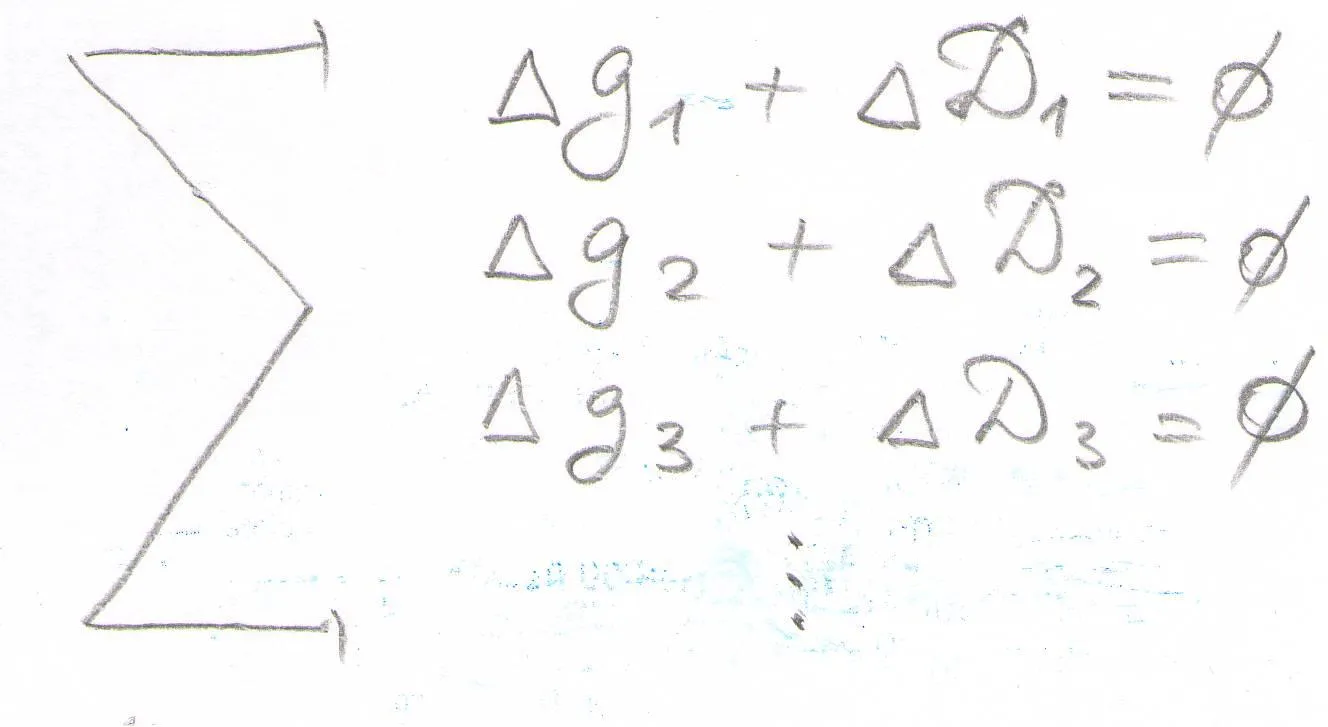 Σ
Δg₁ + ΔD₁ = ∅
Δg₂ + ΔD₂ = ∅
Δg₃ + ΔD₃ = ∅
⋮